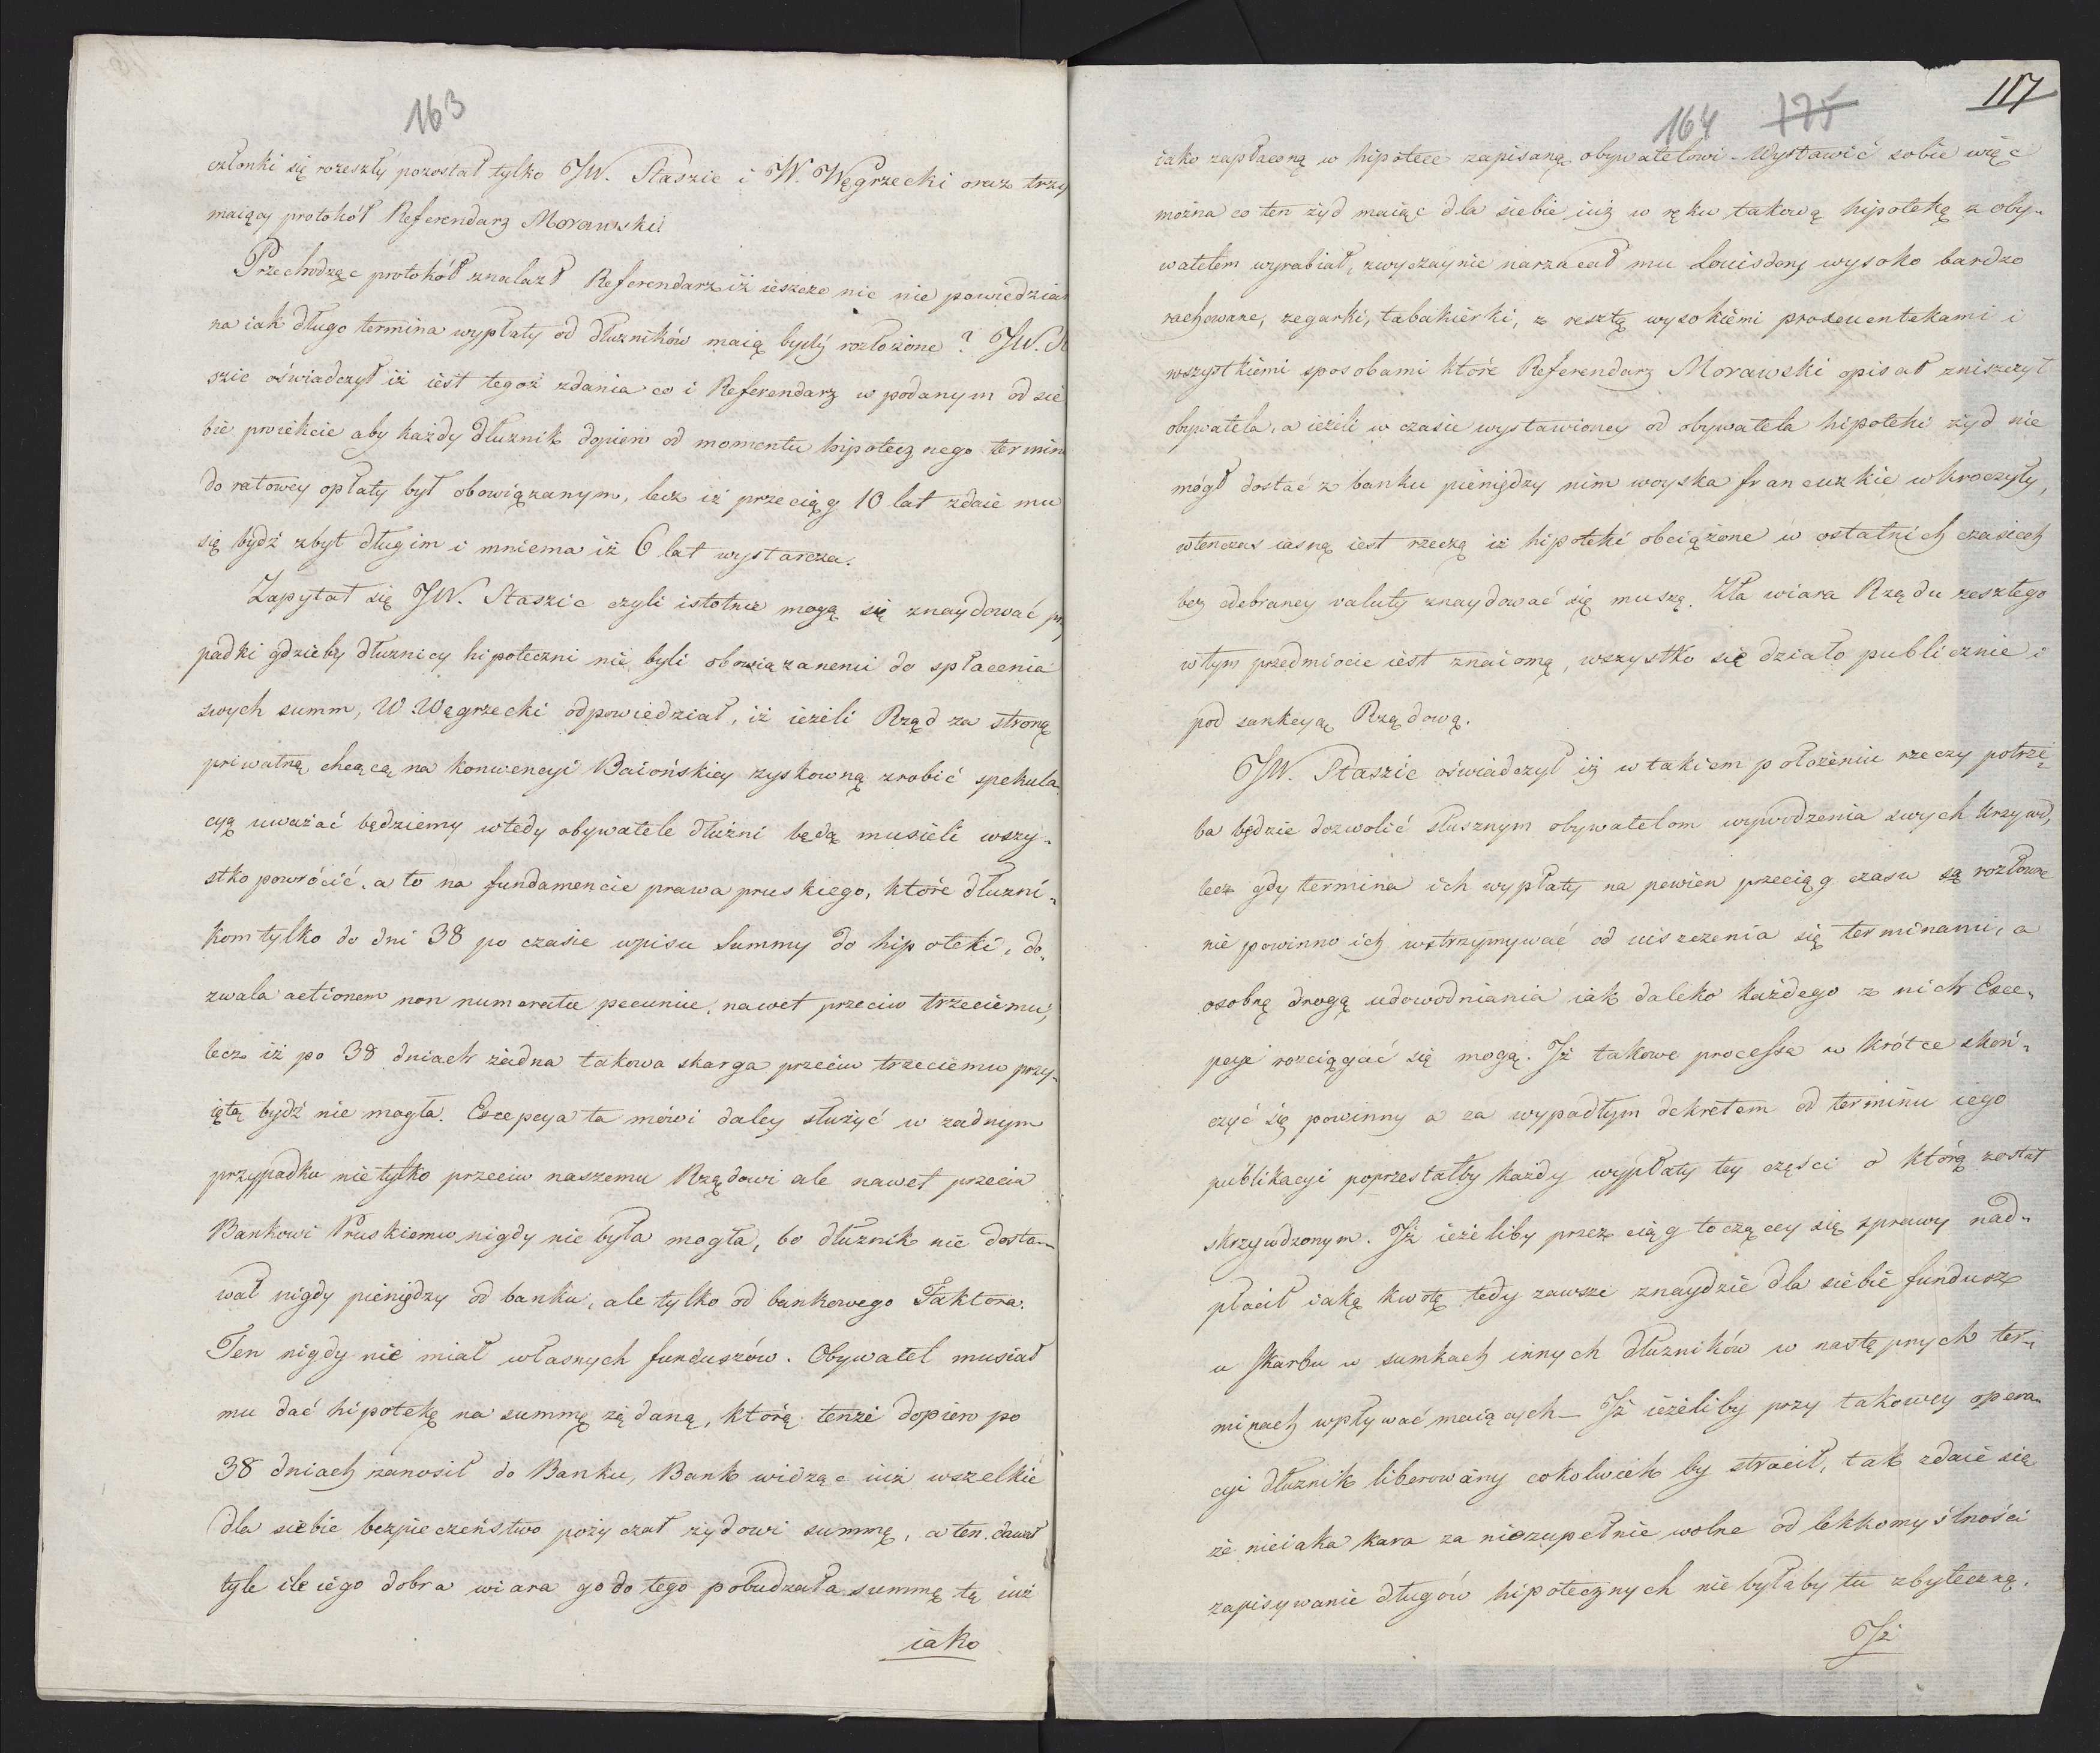 163
członki się rozeszły pozostał tylko JW. Staszic i W. Węgrzecki oraz trzy
maiący protokół Referendarz Morawski.
Przechodząc protokół znalazł Referendarz iż ieszcze nic nie powiedzia
na iak długo termina wypłaty od dłużników maią bydź rozłożone? JW. St
szic oświadczył iż iest tegoż zdania co i Referendarz w podanym od sie
bie proiekcie aby każdy dłużnik dopiero od momentu hipotecznego termin
do ratowey opłaty był obowiązanym, lecz iż przeciąg 10 lat zdaie mu
się bydź zbyt długim i mniema iż 6 lat wystarcza.
Zapytał się JW. Staszic czyli istotnie mogą się znaydować prz
padki gdzieby dłużnicy hipoteczni nie byli obowiązanemi do spłacenia
swych summ, W Węgrzecki odpowiedział, iż ieżeli Rząd za stronę
priwatną chcącą na konwencyi Baiońskiey zyskowną zrobić spekula
cyą uważać będziemy wtedy obywatele dłużni będą musieli wszy-
stko powrócić, a to na fundamencie prawa pruskiego, które dłużni-
kom tylko do dni 38 po czasie wpisu Summy do hipoteki, do-
zwala actionem non numeratae pecuniae, nawet przeciw trzeciemu,
lecz iż po 38 dniach żadna takowa skarga przeciw trzeciemu przy-
iętą bydź nie mogła. Excepcya ta mówi daley służyć w żadnym
przypadku nie tylko przeciw naszemu Rządowi ale nawet przeciw
Bankowi Pruskiemu nigdy nie była mogła, bo dłużnik nie dosta-
wał nigdy pieniędzy od banku, ale tylko od bankowego Faktora.
Ten nigdy nie miał własnych funduszów. Obywatel musiał
mu dać hipotekę na summę żądaną, którą tenże dopiero po
38 dniach zanosił do Banku, Bank widząc iuż wszelkie
dla siebie bezpieczeństwo pożyczał żydowi summę, a ten dawał
tyle ile iego dobra wiara go do tego pobudzała summę tą iuż
iako
117
164 175
iako zapłaconą w hipotece zapisaną obywatelowi. Wystawić sobie więc
można co ten żyd maiąc dla siebie iuż w ręku takową hipotekę z oby-
watelem wyrabiał, zwyczaynie narzucał mu Louisdory wysoko bardzo
rachowane, zegarki, tabakierki, z resztą wysokiemi procentekami i
wszystkiemi sposobami które Referendarz Morawski opisał zniszczył
obywatela, a ieżeli w czasie wystawioney od obywatela hipoteki żyd nie
mógł dostać z banku pieniędzy nim woyska francuzkie wkroczyły,
wtenczas iasną iest rzeczą iż hipoteki obciążone w ostatnich czasiech
bez odebraney valuty znaydować się muszą. Zła wiara Rządu zeszłego
w tym przedmiocie iest znaiomą, wszystko się działo publicznie i
pod sankcyą Rządową.
JW. Staszic oświadczył iż w takiem położeniu rzeczy potrze-
ba będzie dozwolić słusznym obywatelom wywodzenia swych krzywd,
lecz gdy termina ich wypłaty na pewien przeciąg czasu są rozłożone
nie powinno ich wstrzymywać od uiszczenia się terminami, a
osobną drogą udowodniania iak daleko każdego z nich Exce-
pcye rozciągać się mogą. Iż takowe processa w krótce skoń-
czyć się powinny a za wypadłym dekretem od terminu iego
publikacyi poprzestałby każdy wypłaty tey części o którą został
skrzywdzonym. Iż ieżeliby przez ciąg toczącey się sprawy nad-
płacił iaką kwotę tedy zawsze znaydzie dla siebie fundusz
u Skarbu w sumkach innych dłużników w następnych ter-
minach wpływać maiących – Iż ieżeliby przy takowey opera-
cyi dłużnik liberowany cokolwiek by stracił, tak zdaie się
że nieiaka kara za niezupełnie wolne od lekkomyślności
zapisywanie długów hipotecznych nie byłaby tu zbyteczną.
Iż